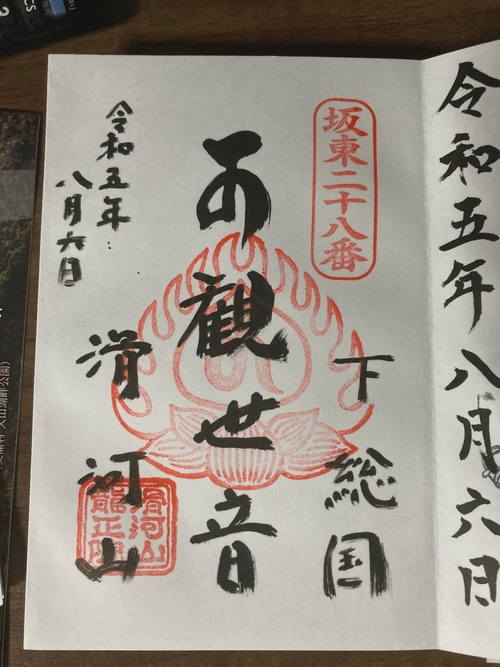 令和五年八月六日
坂東二十八番
下総国
観世音
滑河山
滑河山
龍正院
令和五年
八月六日
湖畔公園)